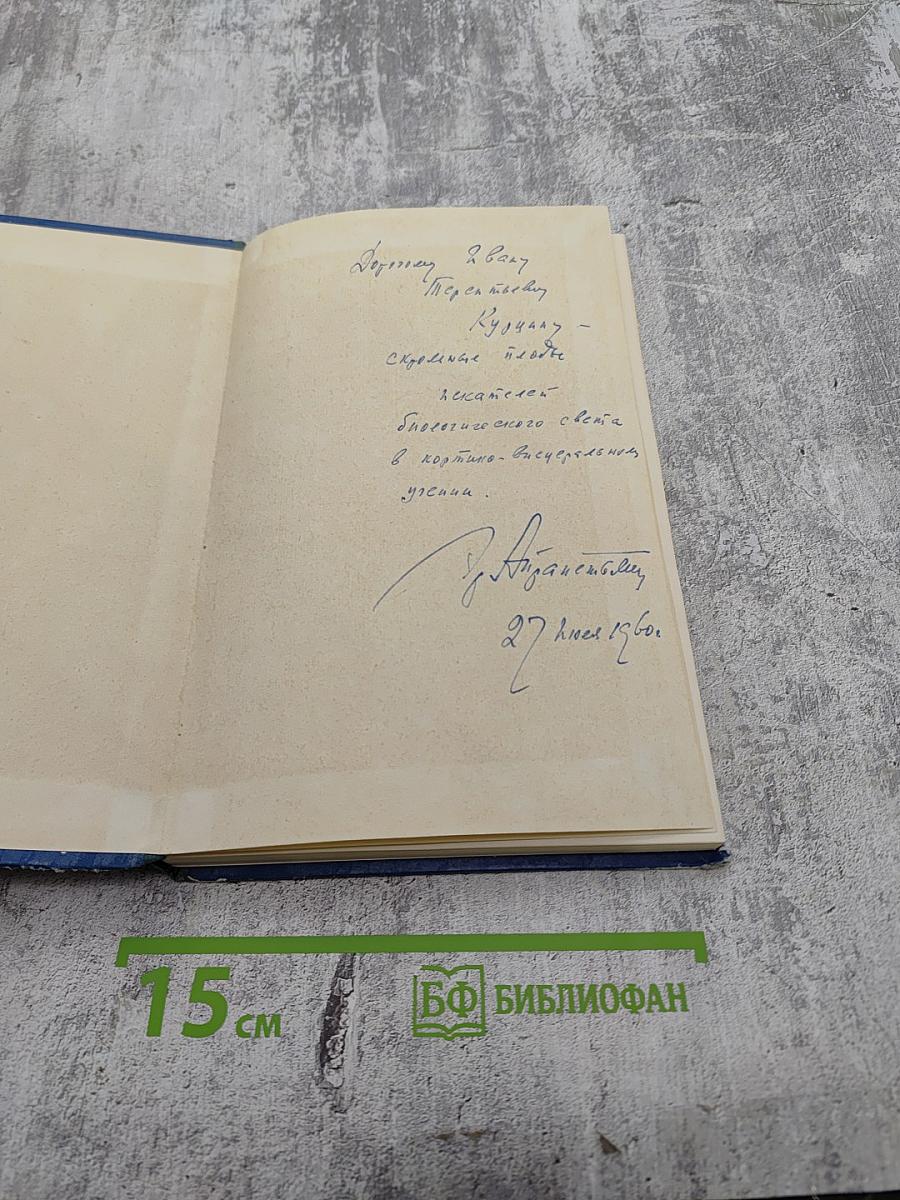 Дорогому Ивану
Терентьевичу
Курцину –
скромные плоды
искателей
биологического света
в кортико-висцеральном
учении.
Эр. Айрапетьянц
27 июля 1960г
15 см
БФ БИБЛИОФАН